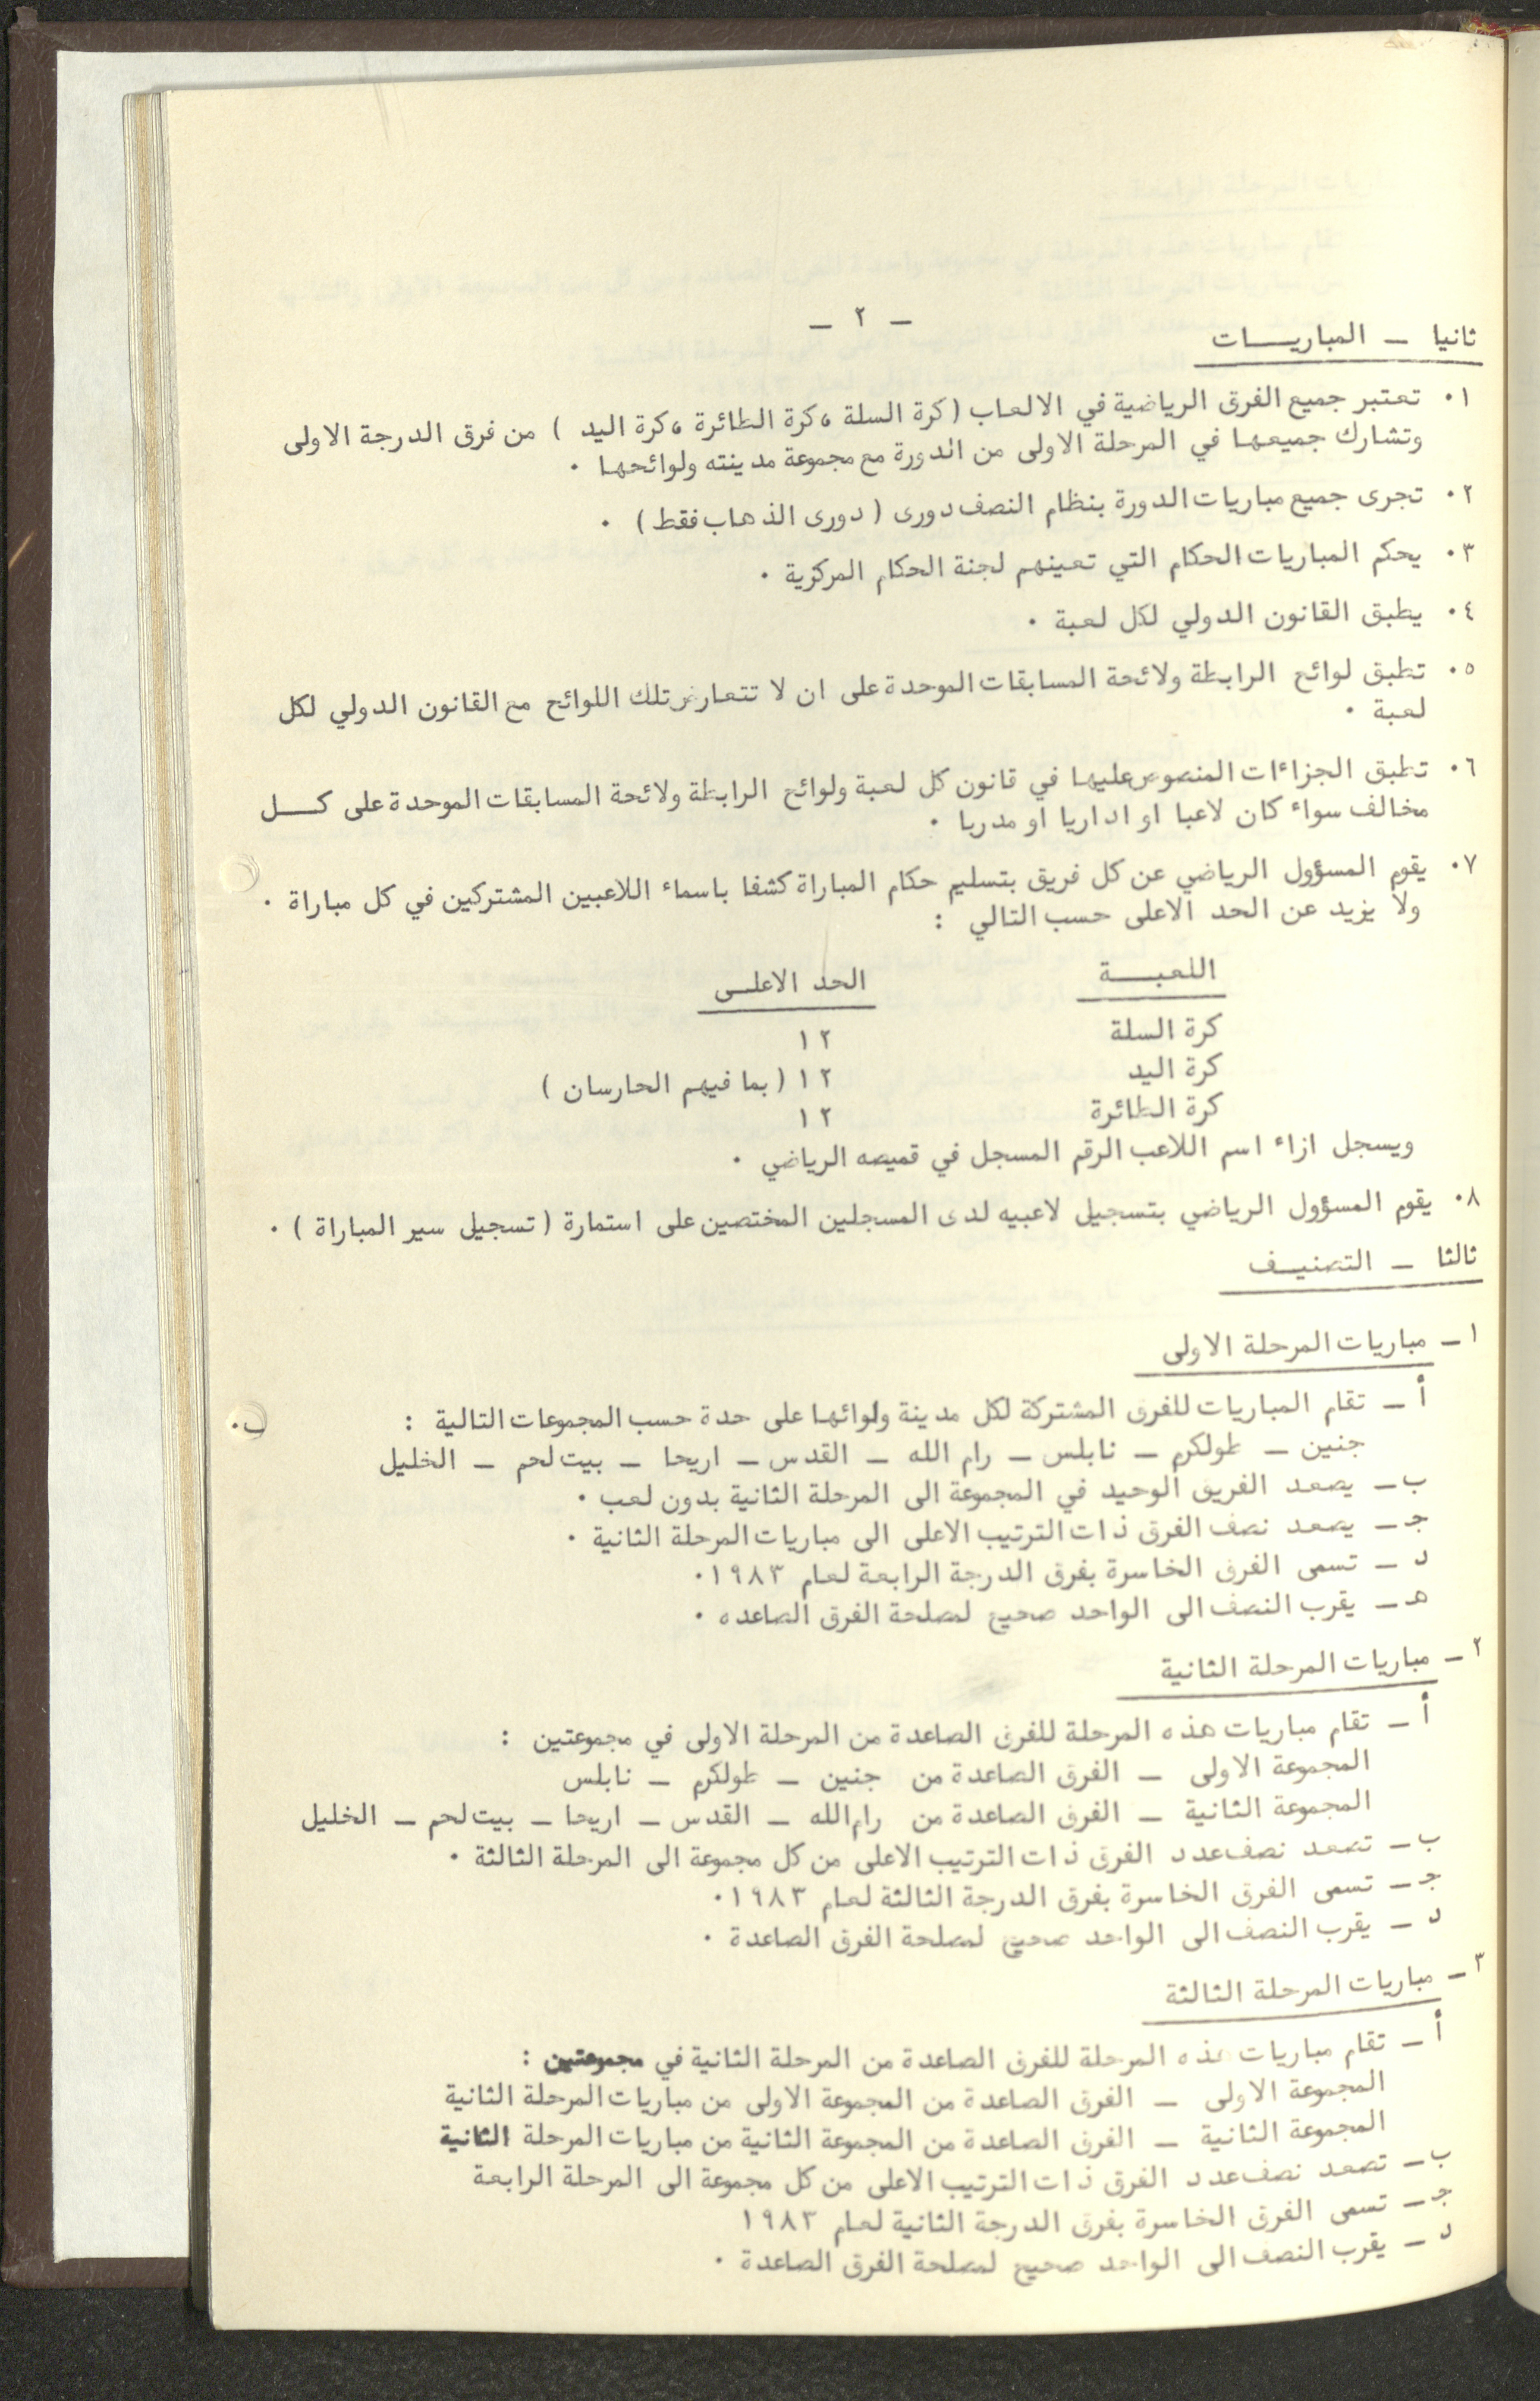 – ٢ –
ثانيا – المباريـــات
٠١ تعتبر جميع الفرق الرياضية في الالعاب (كرة السلة ، كرة الطائرة ، كرة اليد ) من فرق الدرجة الاولى
وتشارك جميعها في المرحلة الاولى من الدورة مع مجموعة مدينته ولوائحها ٠
٠٢ تجرى جميع مباريات الدورة بنظام النصف دورى ( دورى الذهاب فقط ) ٠
٠٣ يحكم المباريات الحكام التي تعينهم لجنة الحكام المركزية ٠
٠٤ يطبق القانون الدولي لكل لعبة ٠
٠٥ تطبق لوائح الرابطة ولائحة المسابقات الموحدة على ان لا تتعارض تلك اللوائح مع القانون الدولي لكل
لعبة ٠
٠٦ تطبق الجزاءات المنصوص عليها في قانون كل لعبة ولوائح الرابطة ولائحة المسابقات الموحدة على كـــل
مخالف سواء كان لاعبا او اداريا او مدربا ٠
٠٧ يقوم المسؤول الرياضي عن كل فريق بتسليم حكام المباراة كشفا باسماء اللاعبين المشتركين في كل مباراة ٠
ولا يزيد عن الحد الاعلى حسب التالي :
اللعبـــة الحد الاعلــى
كرة السلة ١٢
كرة اليد ١٢ ( بما فيهم الحارسان )
كرة الطائرة ١٢
ويسجل ازاء اسم اللاعب الرقم المسجل في قميصه الرياضي ٠
٠٨ يقوم المسؤول الرياضي بتسجيل لاعبيه لدى المسجلين المختصين على استمارة ( تسجيل سير المباراة ) ٠
ثالثا – التصنيــف
١ – مباريات المرحلة الاولى
أ – تقام المباريات للفرق المشتركة لكل مدينة ولوائها على حدة حسب المجموعات التالية :
جنين – طولكرم – نابلس – رام الله – القدس – اريحا – بيت لحم – الخليل
ب – يصعد الفريق الوحيد في المجموعة الى المرحلة الثانية بدون لعب ٠
جـ – يصعد نصف الفرق ذات الترتيب الاعلى الى مباريات المرحلة الثانية ٠
د – تسمى الفرق الخاسرة بفرق الدرجة الرابعة لعام ١٩٨٣٠
هـ – يقرب النصف الى الواحد صحيح لمصلحة الفرق الصاعده ٠
٢ – مباريات المرحلة الثانية
أ – تقام مباريات هذه المرحلة للفرق الصاعدة من المرحلة الاولى في مجموعتين :
المجموعة الاولى – الفرق الصاعدة من جنين – طولكرم – نابلس
المجموعة الثانية – الفرق الصاعدة من رام الله – القدس – اريحا – بيت لحم – الخليل
ب – تصعد نصف عدد الفرق ذات الترتيب الاعلى من كل مجموعة الى المرحلة الثالثة ٠
جـ – تسمى الفرق الخاسرة بفرق الدرجة الثالثة لعام ١٩٨٣٠
د – يقرب النصف الى الواحد صحيح لمصلحة الفرق الصاعدة ٠
٣ – مباريات المرحلة الثالثة
أ – تقام مباريات هذه المرحلة للفرق الصاعدة من المرحلة الثانية في مجموعتين :
المجموعة الاولى – الفرق الصاعدة من المجموعة الاولى من مباريات المرحلة الثانية
المجموعة الثانية – الفرق الصاعدة من المجموعة الثانية من مباريات المرحلة الثانية
ب – تصعد نصف عدد الفرق ذات الترتيب الاعلى من كل مجموعة الى المرحلة الرابعة
جـ – تسمى الفرق الخاسرة بفرق الدرجة الثانية لعام ١٩٨٣
د – يقرب النصف الى الواحد صحيح لمصلحة الفرق الصاعدة ٠